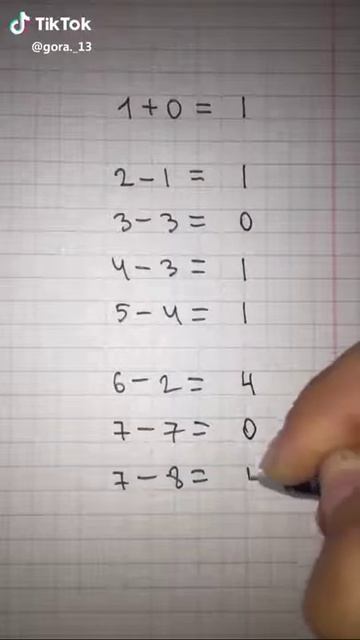 TikTok
@gora._13
1+0 = 1
2-1 = 1
3-3 = 0
4-3 = 1
5-4 = 1
6-2 = 4
7-7 = 0
7-8 =